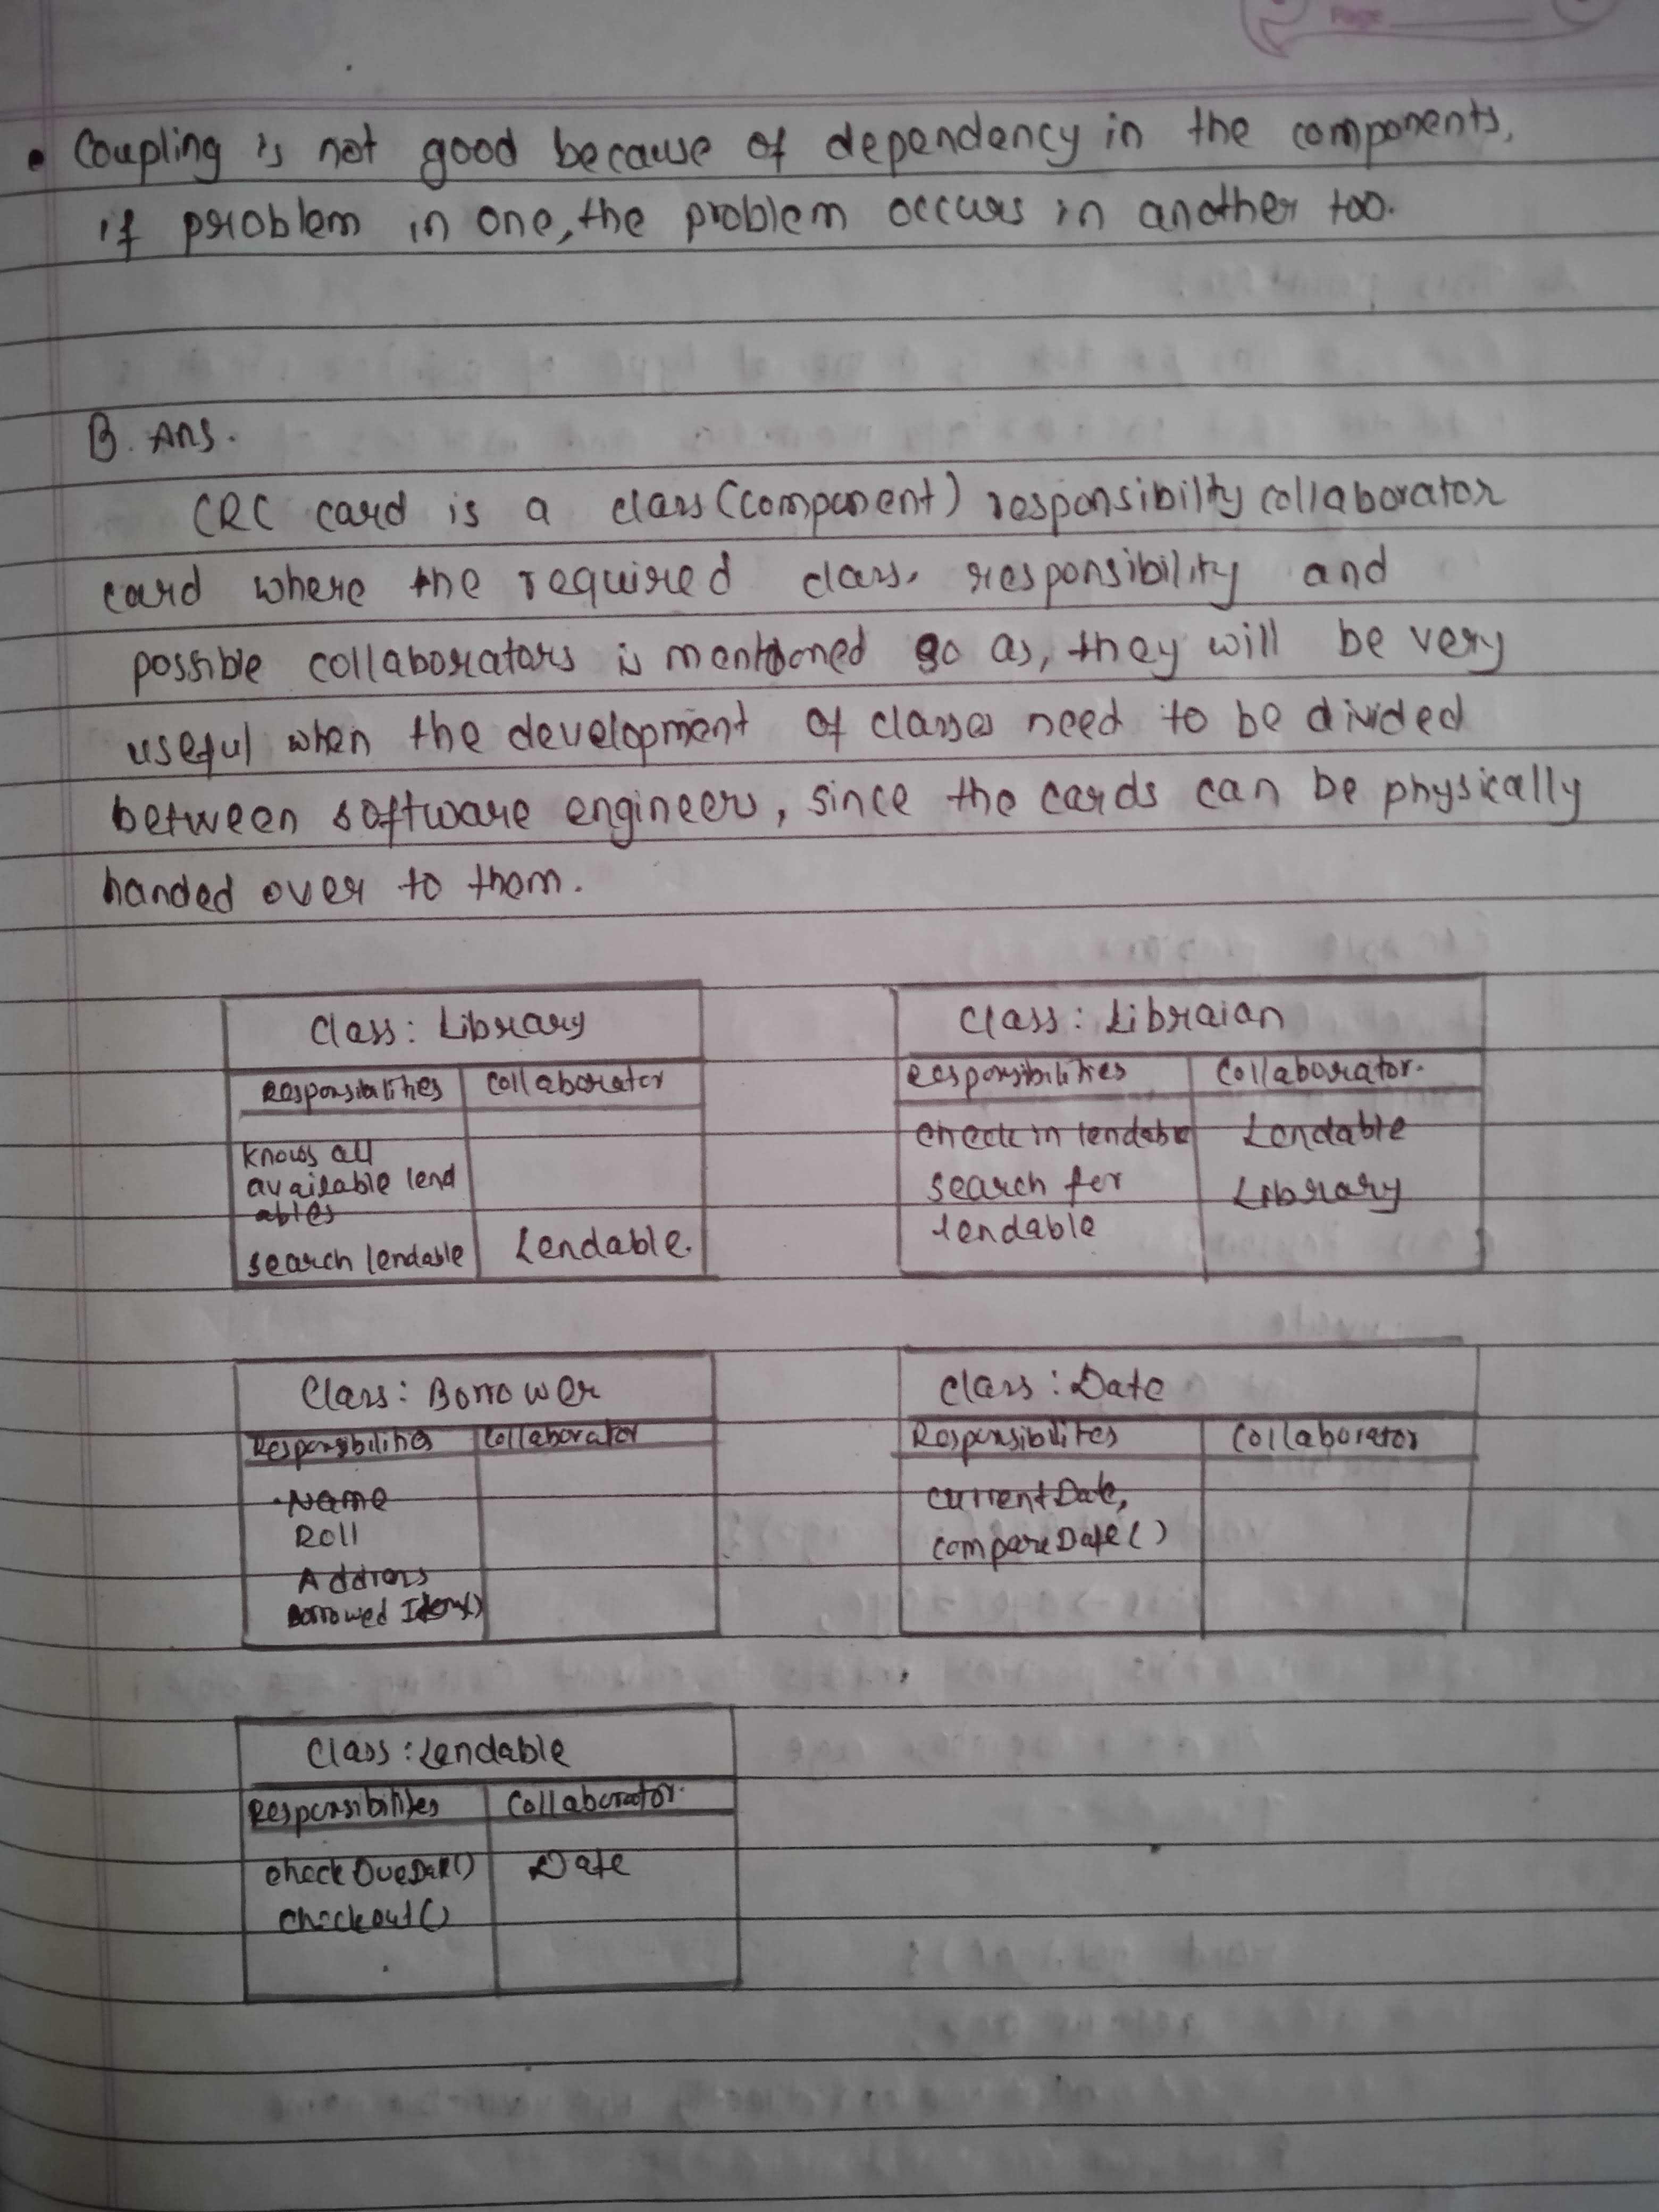 Page
• Coupling is not good because of dependency in the components,
if problem in one, the problem occurs in another too.
B. Ans.
CRC card is a class (component) responsibilty collaborator
card where the required class, responsibility and
possible collaborators is mentioned so as, they will be very
useful when the development of classes need to be divided
between software engineers, since the cards can be physically
handed over to them.
Class: Library
Responsibilities Collaborator
knows all
available lend
ables
search lendable Lendable.
Class: Libraian
Responsibilities Collaborator.
check in lendable Lendable
search for Library
lendable
Class: Borrower
Responsibilities Collaborator
Name
Roll
Address
Borrowed Items()
Class: Date
Responsibilites Collaborator
currentDate,
compareDate()
Class: Lendable
Responsibilities Collaborator.
check DueDate() Date
checkout()